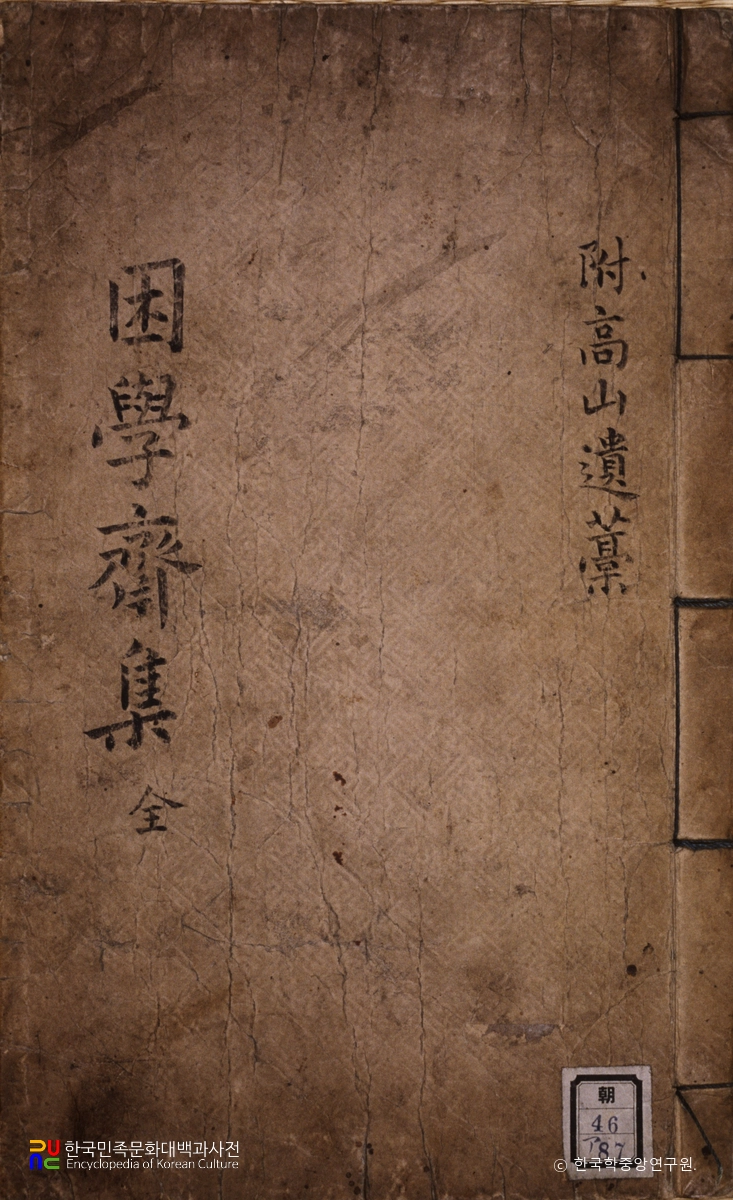 附高山遺藁
困學齋集 全
朝
46
87
한국민족문화대백과사전
Encyclopedia of Korean Culture
ⓒ 한국학중앙연구원.